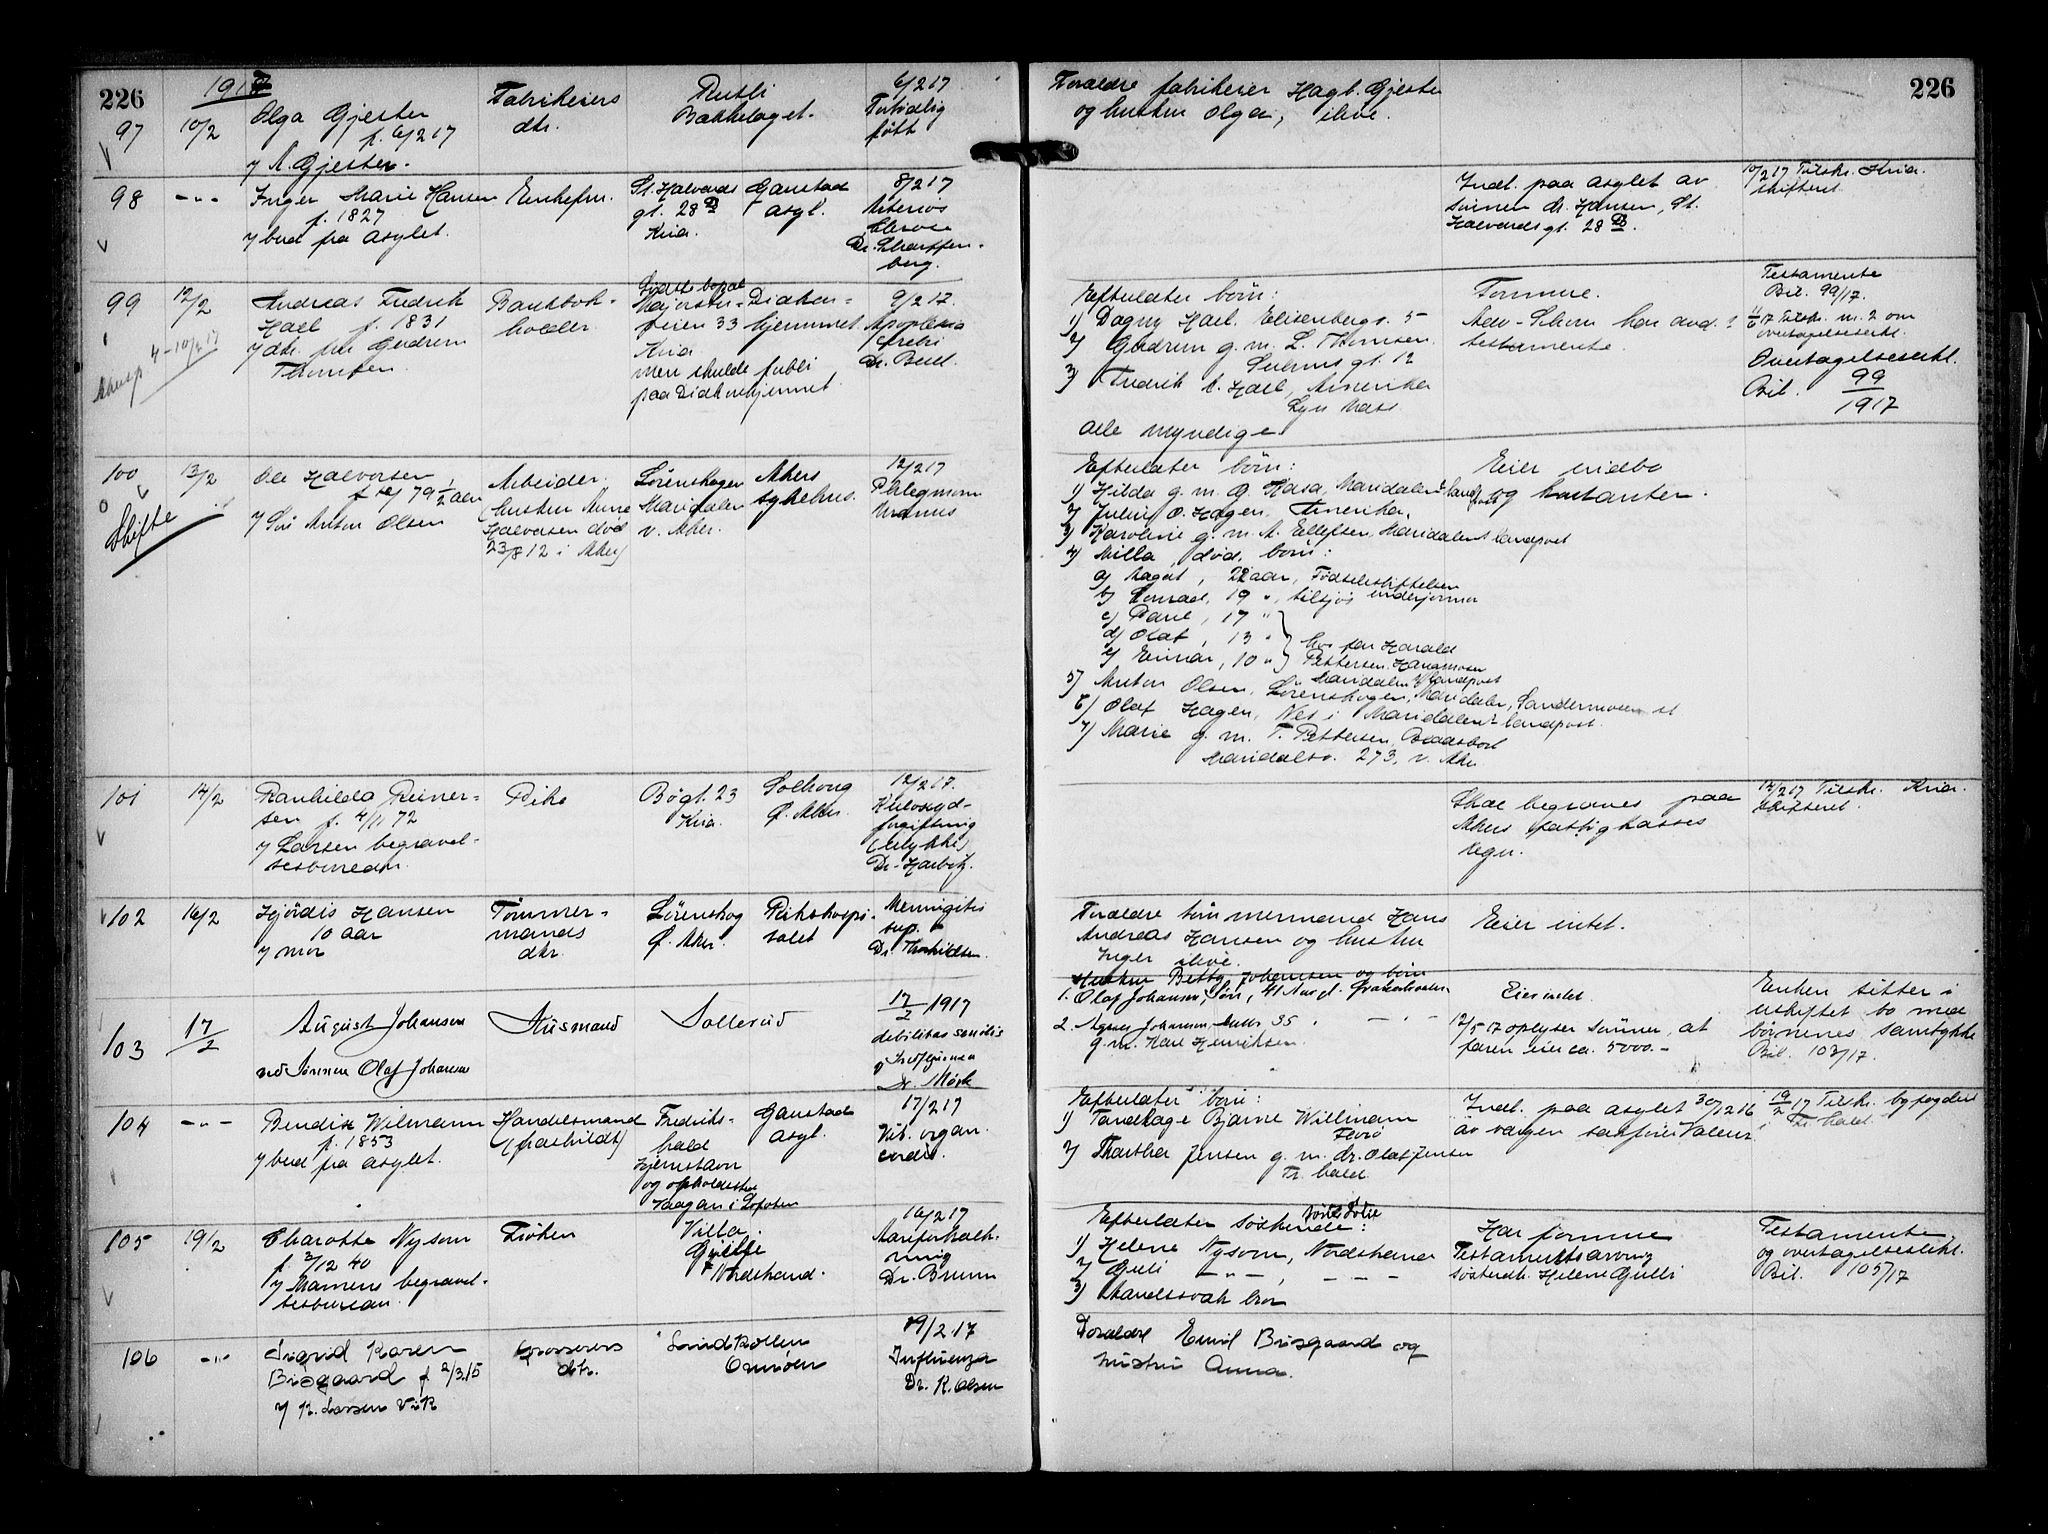 226
1917
97
10/2
Olga Gjester
f. 6/2 17
v/ A. Gjester.
Fabrikeiers
dtr.
Rustli
Bækkelaget.
6/2 17
Fortidlig
født
Forældre fabrikeier Hagb. Gjester
og hustru Olga, ilive.
226
98
-"-
Inger Marie Hansen
f. 1827
v/ bud fra asylet.
Enkefru.
St. Halvards
gt. 28 B
Kria.
Gaustad
asyl.
8/2 17
Arterios
clerose
Dr. Scharffen-
berg.
Indl. paa asylet av
sønnen dr. Hansen, St.
Halvardsgt. 28 B.
10/2 17 Tilskr. Kria.
skifteret.
99
12/2
Andreas Fredrik
Hael f. 1831
v/ dtr. fru Gudrun
Thomsen.
Bankbok-
holder.
Sidste bopæl
Majorstu-
veien 33
Kria.
men skulde forbli
paa Diakonhjemmet
Diakon-
hjemmet
9/2 17.
Apoplexia
cerebri
Efterlater børn:
1) Dagny Hael, Elisenbergv. 5
2) Gudrun g. m. L. Thomsen.
Suhmsgt. 12
3) Fredrik A. Hael, Amerika
Lyn Mass.
alle myndige
Formue.
testamente.
Testamente
Bil. 99/17.
overtagelseserkl.
Overtagelseserkl.
Bil. 99/1917
100
13/2
Skifte
Ole Halvorsen,
79 1/2 aar
v/ Søn Anton Olsen
Arbeider.
(hustru Anne
Halvorsen død
23/8 12 i Aker)
Lørenskogen
Maridalen
v. Aker.
Akers
sykehus.
12/2 17
Phlegmone
manus
Efterlater børn:
1) Hilda g. m. G. Hasa, Maridalens landpost
2) Julius O. Hagen, Amerika.
3) Karoline g. m. A. Ellefsen, Maridalens landpost
4) Milla, død, børn:
a) Aagot, 22 aar, Fødselsstiftelsen
b) Konrad, 19 ", tilsjøs
c) Paul, 17 "
d) Olaf, 13 "
e) Einar, 10 " } hos far Harald
Pettersen,
Maridalen landpost
5) Anton Olsen, Lørenskogen, Maridalen, Sandermosen st
6) Olaf Hagen, Nes i Maridalens landpost.
7) Marie g. m. T. Pettersen,
Maridalsv. 273, v. Aker.
Eier indbo
og kontanter.
101
14/2
Ranhilda Reiner-
sen f. 4/11 72
v/ Larsen begravel-
sesbureau.
Pike
Bøgt. 23
Kria.
Solhaug
Ø. Aker.
12/2 17.
Kulosyd-
forgiftning
(ulykke)
Dr. Harbitz.
Skal begraves paa
Akers fattigkasses
regn.
14/2 17 Tilskr. Kria.
skifteret.
102
16/2
Hjördis Hansen
10 aar
v/ mor
Tømmer-
mands
dtr.
Lørenskog
Ø. Aker.
Rikshospi-
talet
Meningitis
sup.
Dr. Thorkildsen.
Forældre tømmermand Hans
Andreas Hansen og hustru
Inger ilive.
Eier intet.
103
17/2
August Johansen
ved Sønnen Olaf Johansen
Husmand
Sollerud
17/2 1917
debilitas senilis
Dr. Mørk
Hustru Betty Johansen og børn
1. Olaf Johansen, Søn, 41 Aar,
2. Agnes Johansen, datter, 35 " - " -
g. m. Karl Henriksen.
Eier intet
12/5 17 oplyser sønner, at
faren eier ca. 5000.-
Enken sitter i
uskiftet bo med
børnenes samtykke
Bil. 103/17.
104
-"-
Bendix Wilmann
f. 1853
v/ bud fra asylet.
Handelsmand
(fraskildt)
Fredriks-
hald
Hjemstavn
og opholdssted
Vaagan i Lofoten
Gaustad
asyl.
17/2 17
Vit. organ.
cordis.
Efterlater børn:
1) Tandlæge Bjarne Willmann
Florø
2) Martha Jensen g. m. dr. Olaf Jensen
Fr. hald
Indl. paa asylet 30/12 16
av værgen
19/2 17 Tilskr. byfogden
Fr. hald.
105
19/2
Charlotte Nysom
f. 3/12 40
v/ Mamens begravel-
sesbureau.
Frøken
Villa
Nordstrand.
16/2 17
Aareforkalk-
ning
Dr. Bruun
Efterlater søskende:
1) Helene Nysom, Nordstrand
2) Gulli -"-, - - -
3) Aandssvak bror
Har formue
Testamentsarving
søsteren Helene Gulli
Testamente
og overtagelseserkl.
Bil. 105/17
106
-"-
Sigrid Karen
Bisgaard f 2/3.15
v/ K. Larsen Vik
Grosserers
dtr.
Solidkollen
Ormøen
19/2 17
Influenza
Dr. K. Olsen
Forældre Emil Bisgaard og
hustru Anna.